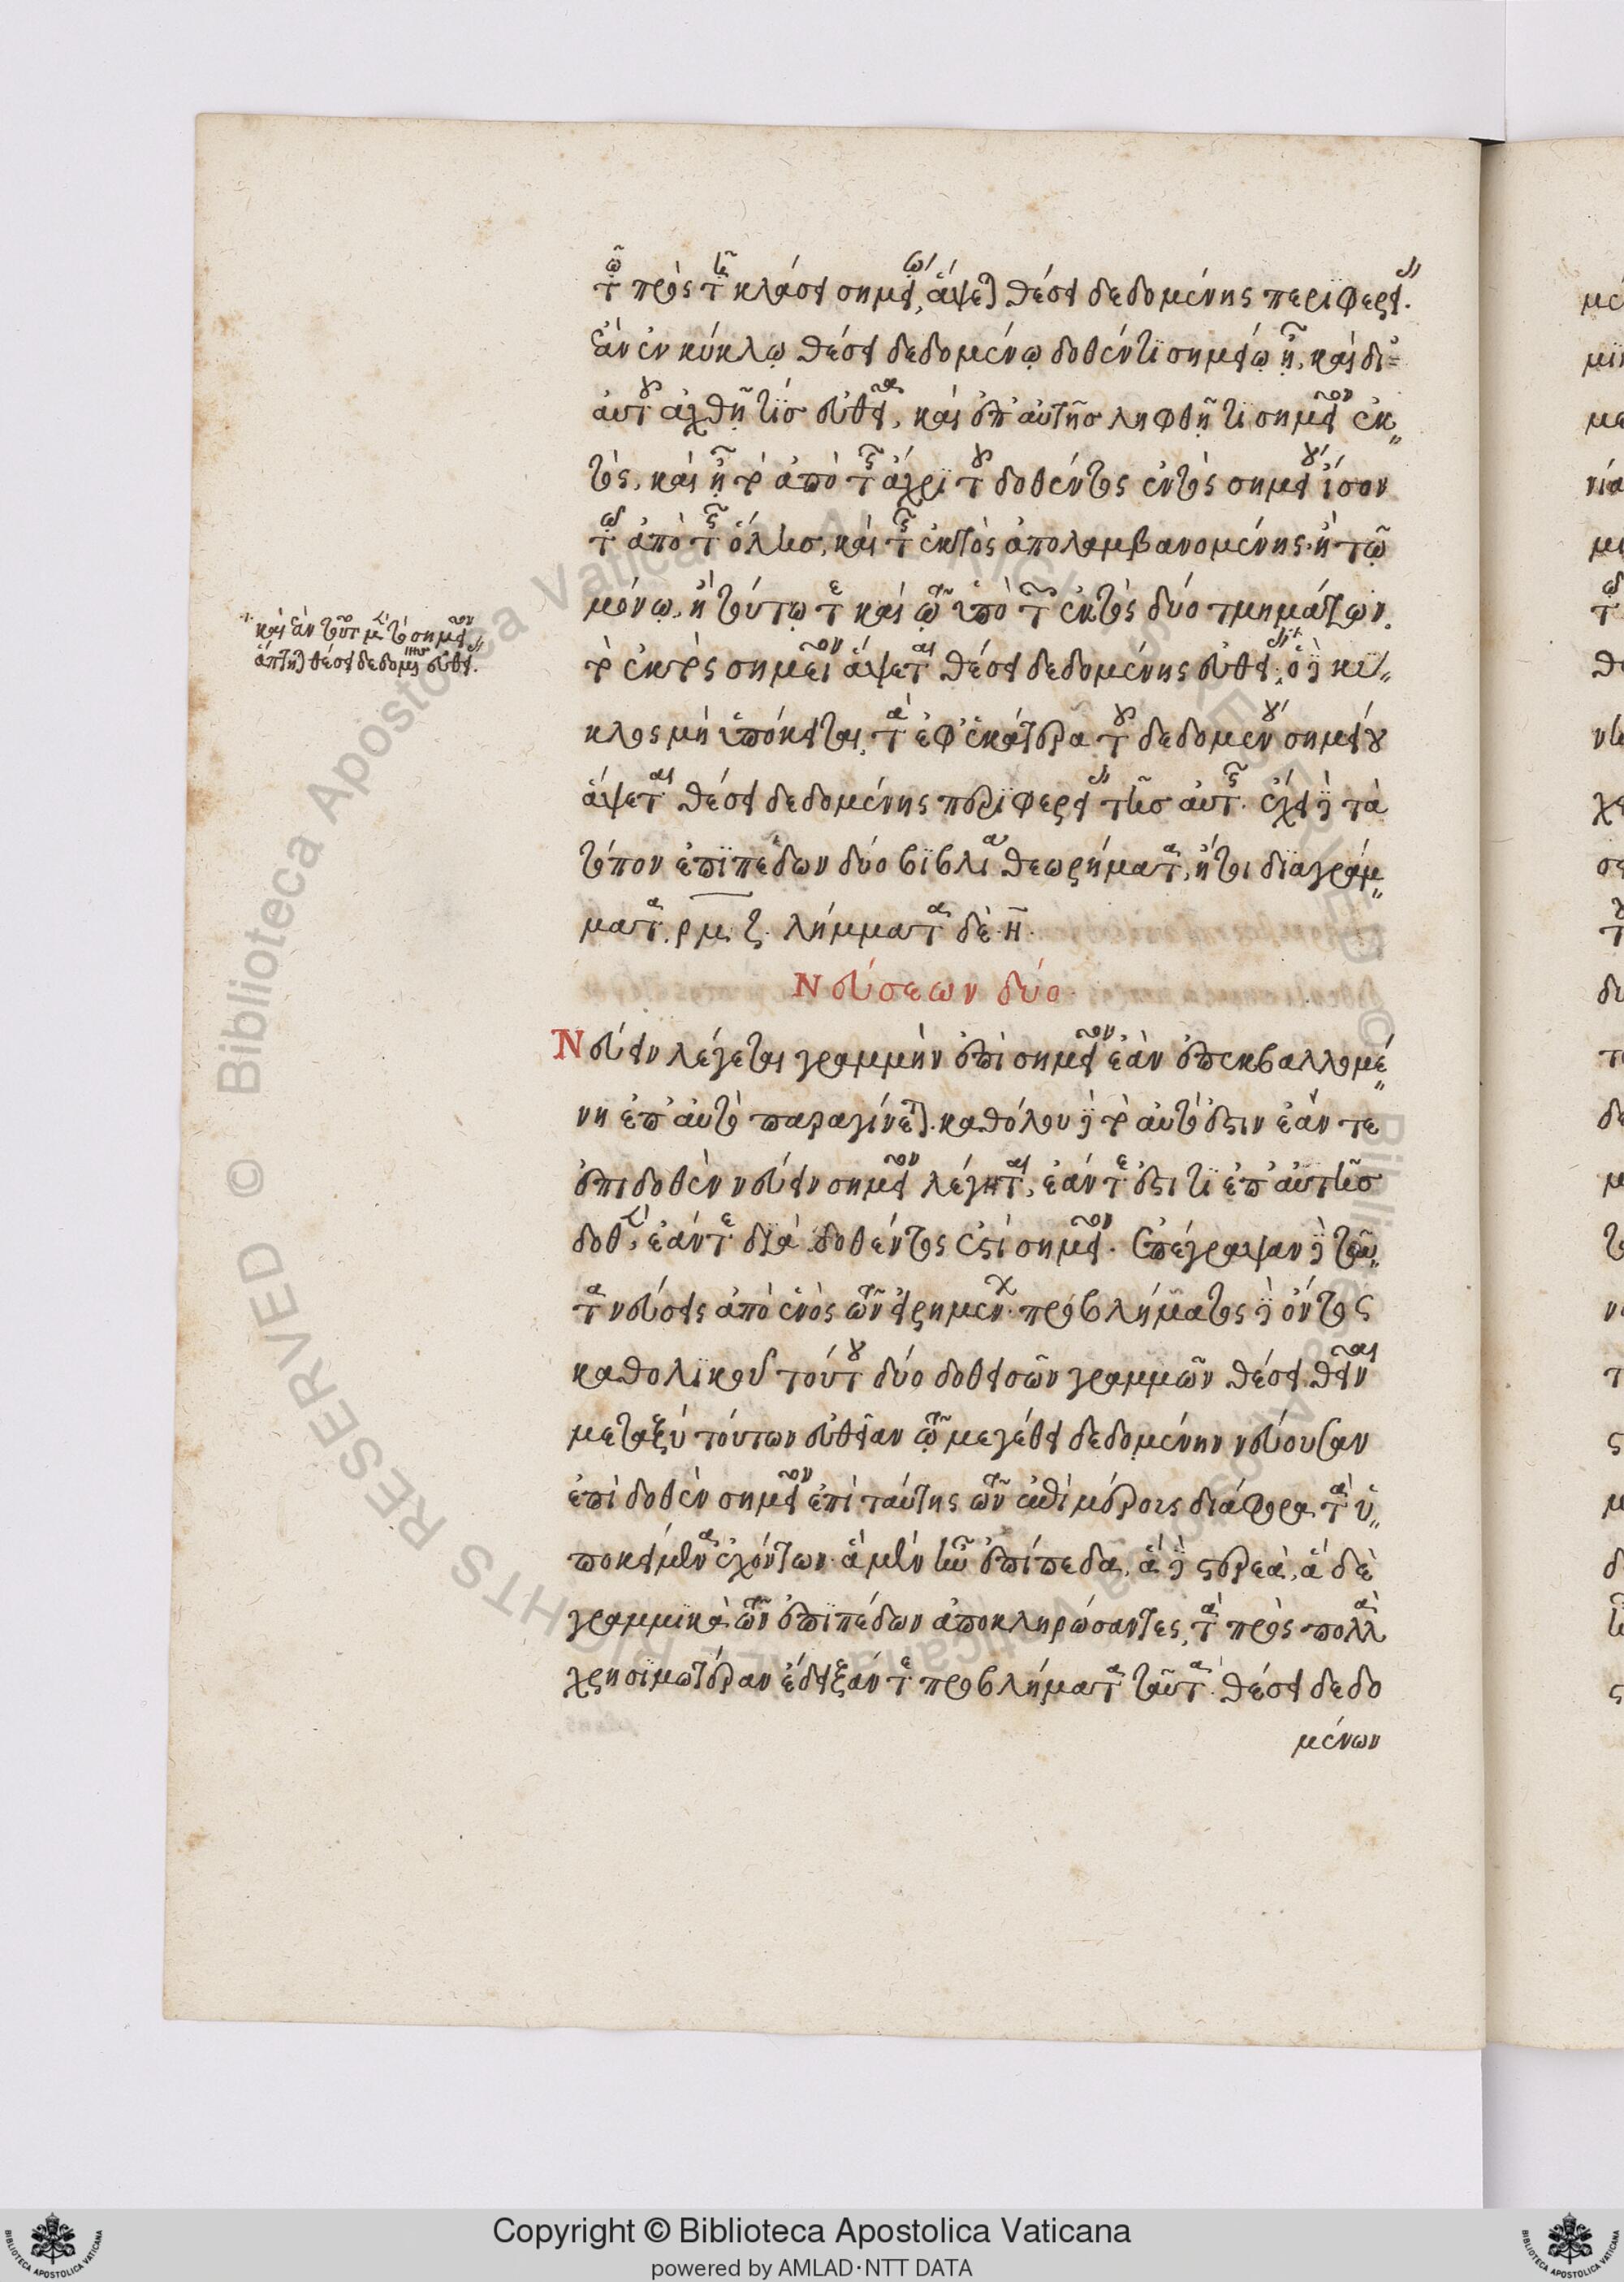 τῷ πρὸς τῇ κλάσει σημείῳ, ἅψεται θέσει δεδομένης περιφερείας.
ἐὰν ἐν κύκλῳ θέσει δεδομένῳ δοθέν τι σημεῖον ᾖ, καὶ δι'
αὐτοῦ ἀχθῇ τις εὐθεῖα, καὶ ἐπ' αὐτῆς ληφθῇ τι σημεῖον ἐκ
τὸς, καὶ ᾖ τὸ ἀπὸ τῆς ἄχρι τοῦ δοθέντος ἐντὸς σημείου ἴσον
τῷ ἀπὸ τῆς ὅλης, καὶ τῆς ἐκτὸς ἀπολαμβανομένης. ἢ τῷ
μόνῳ, ἢ τούτῳ τε καὶ τῷ ὑπὸ τῶν ἐκτὸς δύο τμημάτων.
τὸ ἐκτὸς σημεῖον ἅψεται θέσει δεδομένης εὐθείας· ὁ δὲ κύ
κλος μὴ ὑπόκειται, τὰ ἐφ' ἑκάτερα τοῦ δεδομένου σημείου
ἅψεται θέσει δεδομένης περιφερείας τῆς αὐτῆς. ἔχει δὲ τὰ
τόπων ἐπιπέδων δύο βιβλία θεωρήματα, ἤτοι διαγράμ
ματα ρμζ. λήμματα δὲ η.
καὶ ἐὰν τοῦτο μὲν τὸ σημεῖον
ἅπτηται θέσει δεδομένης εὐθείας.
Νεύσεων δύο
Νεύειν λέγεται γραμμὴν ἐπὶ σημεῖον ἐὰν ἐπεκβαλλομέ
νη ἐπ' αὐτὸ παραγίνεται. καθόλου δὲ τὸ αὐτό ἐστιν ἐάν τε
ἐπὶ δοθὲν νεύειν σημεῖον λέγηται, ἐάν τε ἔστι τι ἐπ' αὐτῆς
δοθὲν, ἐάν τε διὰ δοθέντος ἐστὶ σημείου. ἐπέγραψαν δὲ ταῦ
τα νεύσεις ἀπὸ ἑνὸς τῶν εἰρημένων. προβλήματος δὲ ὄντος
καθολικοῦ τούτου δύο δοθεισῶν γραμμῶν θέσει θεῖναι
μεταξὺ τούτων εὐθεῖαν τῷ μεγέθει δεδομένην νεύουσαν
ἐπὶ δοθὲν σημεῖον ἐπὶ ταύτης τῶν ἐπὶ μέρους διάφορα τὰ ὑ
ποκείμενα ἐχόντων. ἃ μὲν ἦν ἐπίπεδα, ἃ δὲ στερεὰ, ἃ δὲ
γραμμικὰ τῶν ἐπιπέδων ἀποκληρώσαντες, τὰ πρὸς πολλὰ
χρησιμώτεραν ἔδειξάν τε προβλήματα ταῦτα. θέσει δεδο
μένων
Copyright © Biblioteca Apostolica Vaticana
powered by AMLAD·NTT DATA